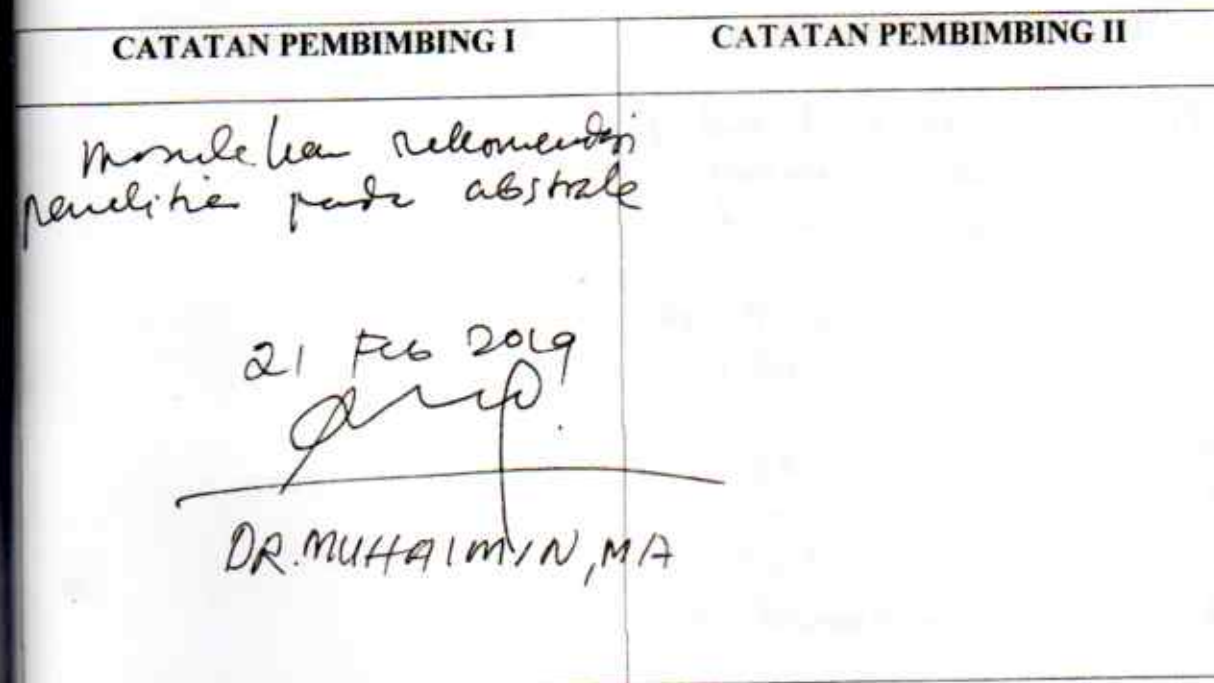 CATATAN PEMBIMBING I
CATATAN PEMBIMBING II
Masukkan rekomendasi
penelitian pada abstrak
21 Feb 2019
DR. MUHAIMIN, MA